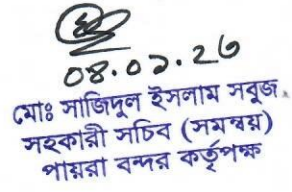 ০৪.০১.২৬
মোঃ সাজিদুল ইসলাম সবুজ
সহকারী সচিব (সমন্বয়)
পায়রা বন্দর কর্তৃপক্ষ